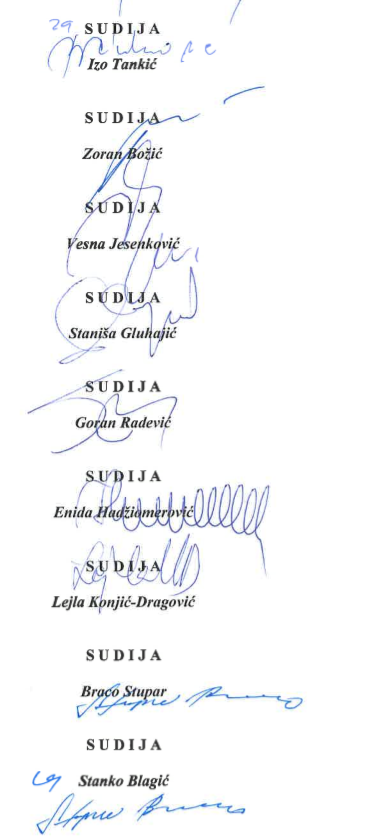 SUDIJA
Izo Tankić
SUDIJA
Zoran Božić
SUDIJA
Vesna Jesenković
SUDIJA
Staniša Gluhajić
SUDIJA
Goran Radević
SUDIJA
Enida Hadžiomerović
SUDIJA
Lejla Konjić-Dragović
SUDIJA
Braco Stupar
SUDIJA
Stanko Blagić